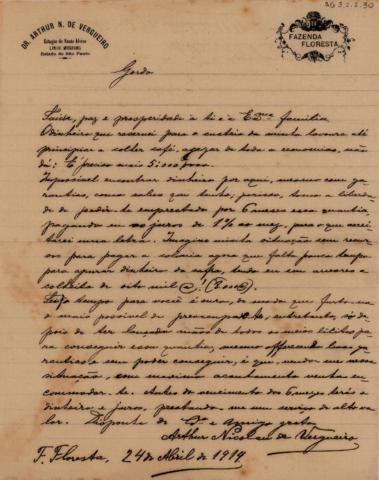 AG 3.2.2.30
DR. ARTHUR N. DE VERGUEIRO
Estação de Nauto
LINHA MOGYANA
Estado de São Paulo
FAZENDA
FLORESTA
Gerdo
Saúde, paz e prosperidade a ti e a Exma familia
O dinheiro que reservei para o custeio da minha lavoura até
principiar a colher café, apezar de toda a economia, não
dá! É preciso mais 5:000$000.
Impossivel encontrar dinheiro por aqui, mesmo com ga-
rantias, como sabes que tenho; por isso, tomo a liberda-
de de pedir-te emprestado por 6 mezes essa quantia,
pagando eu os juros de 1% ao mez, para o que acei-
tarei uma letra. Imagine minha situação sem recur-
sos para pagar a colonia agora que falta pouco tempo
para apurar dinheiro da safra, tendo eu em arvores a
colheita de oito mil @! (8000@).
Seu tempo para você é ouro, de modo que furto-me
o mais possivel de preoccupal-o, entretanto, só de-
pois de ter lançado mão de todos os meios licitos pa-
ra conseguir essa quantia, mesmo offerecendo boas ga-
rantias e sem poder conseguir, é que, vendo-me nessa
situação, com maximo acanhamento venho in-
commodar-te. Antes do vencimento dos 6 mezes terás o
dinheiro e juros, prestando-me um serviço de alto va-
lor. Disponha do Am.º e amigo grato
Arthur Nicolau de Vergueiro
F. Floresta, 24 de Abril de 1914